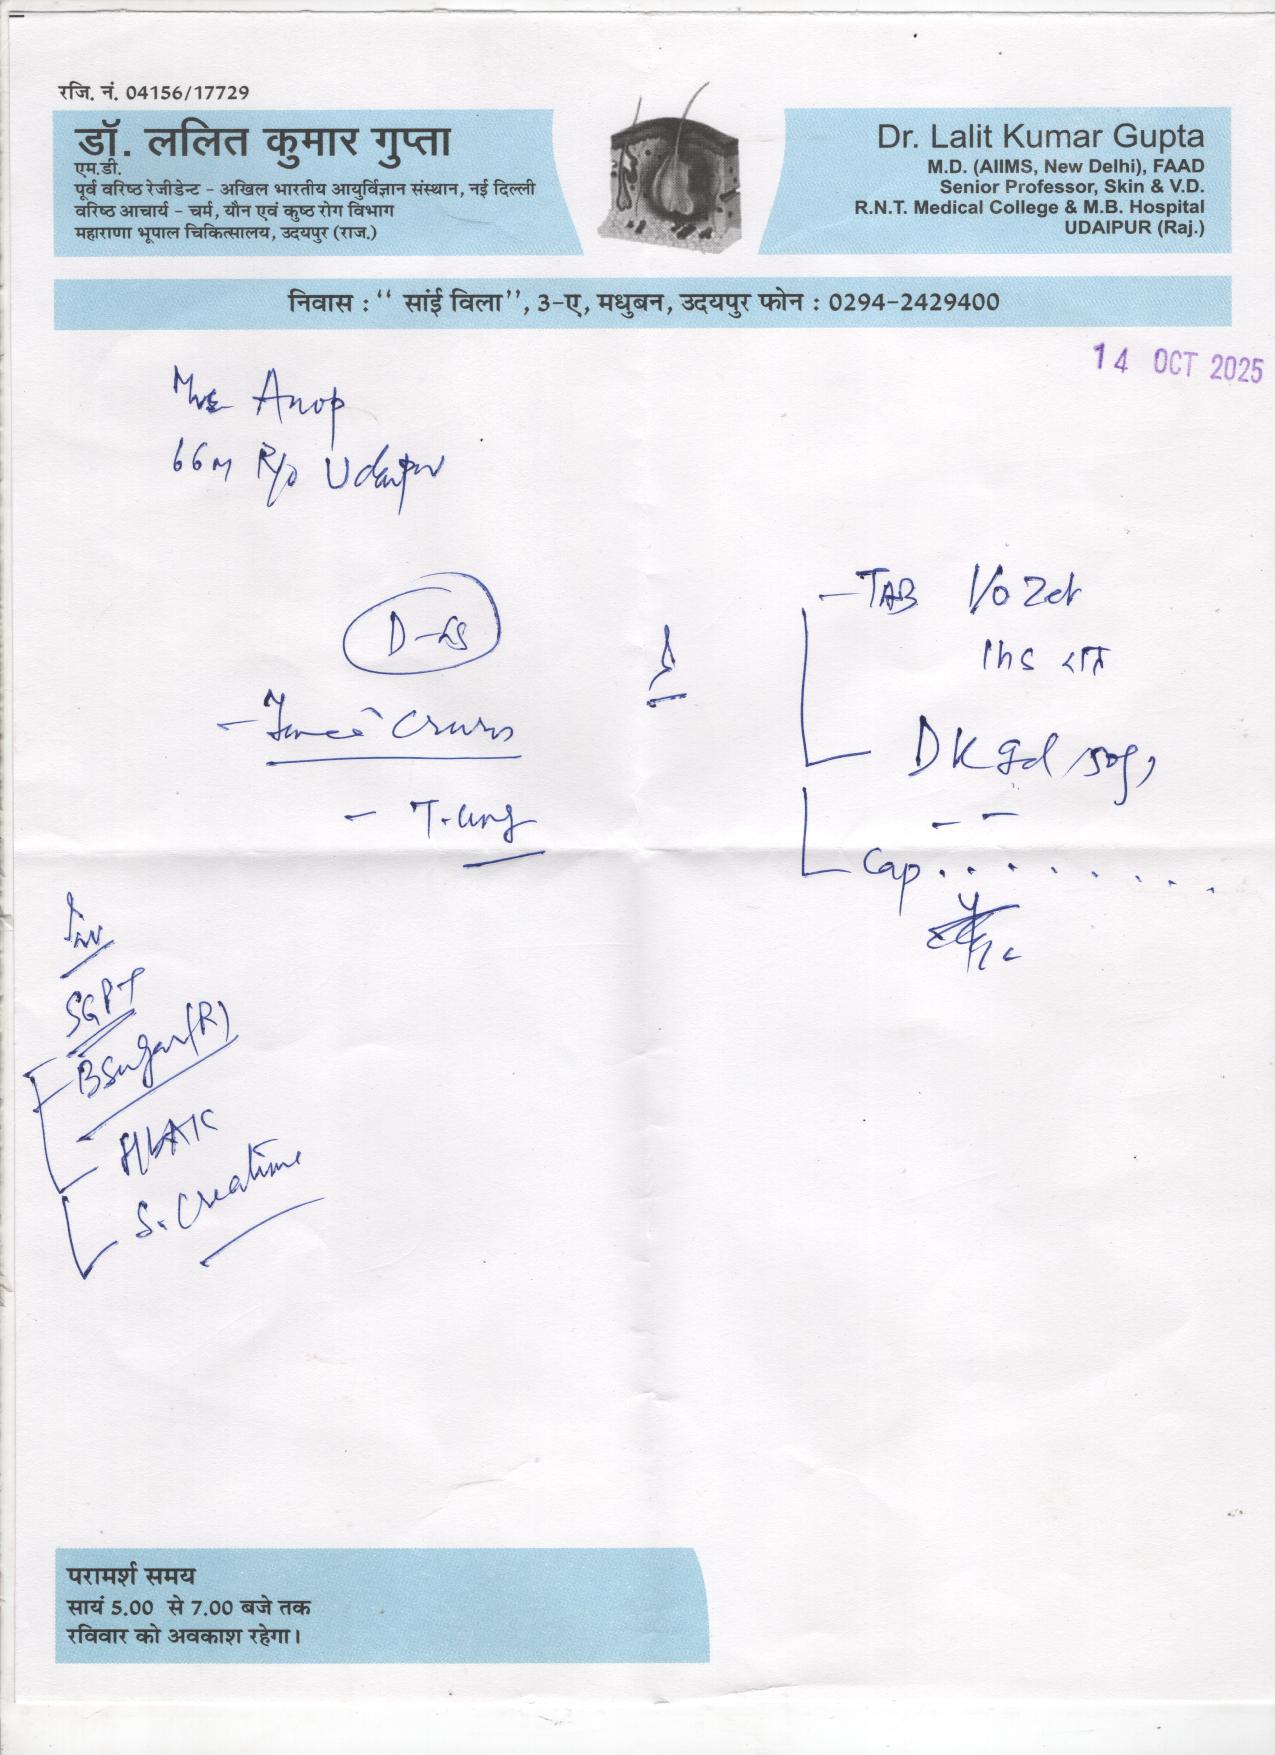 रजि. नं. 04156/17729
डॉ. ललित कुमार गुप्ता
एम.डी.
पूर्व वरिष्ठ रेजीडेन्ट - अखिल भारतीय आयुर्विज्ञान संस्थान, नई दिल्ली
वरिष्ठ आचार्य - चर्म, यौन एवं कुष्ठ रोग विभाग
महाराणा भूपाल चिकित्सालय, उदयपुर (राज.)
Dr. Lalit Kumar Gupta
M.D. (AIIMS, New Delhi), FAAD
Senior Professor, Skin & V.D.
R.N.T. Medical College & M.B. Hospital
UDAIPUR (Raj.)
निवास : “ सांई विला”, 3-ए, मधुबन, उदयपुर फोन : 0294-2429400
14 OCT 2025
Anop
66 M R/o Udaipur
- TAB
1hs रात
Cruris
- T.
Cap . . . . . . . .
Inv
SGPT
B Sugar (R)
S. Creatinine
परामर्श समय
सायं 5.00 से 7.00 बजे तक
रविवार को अवकाश रहेगा।